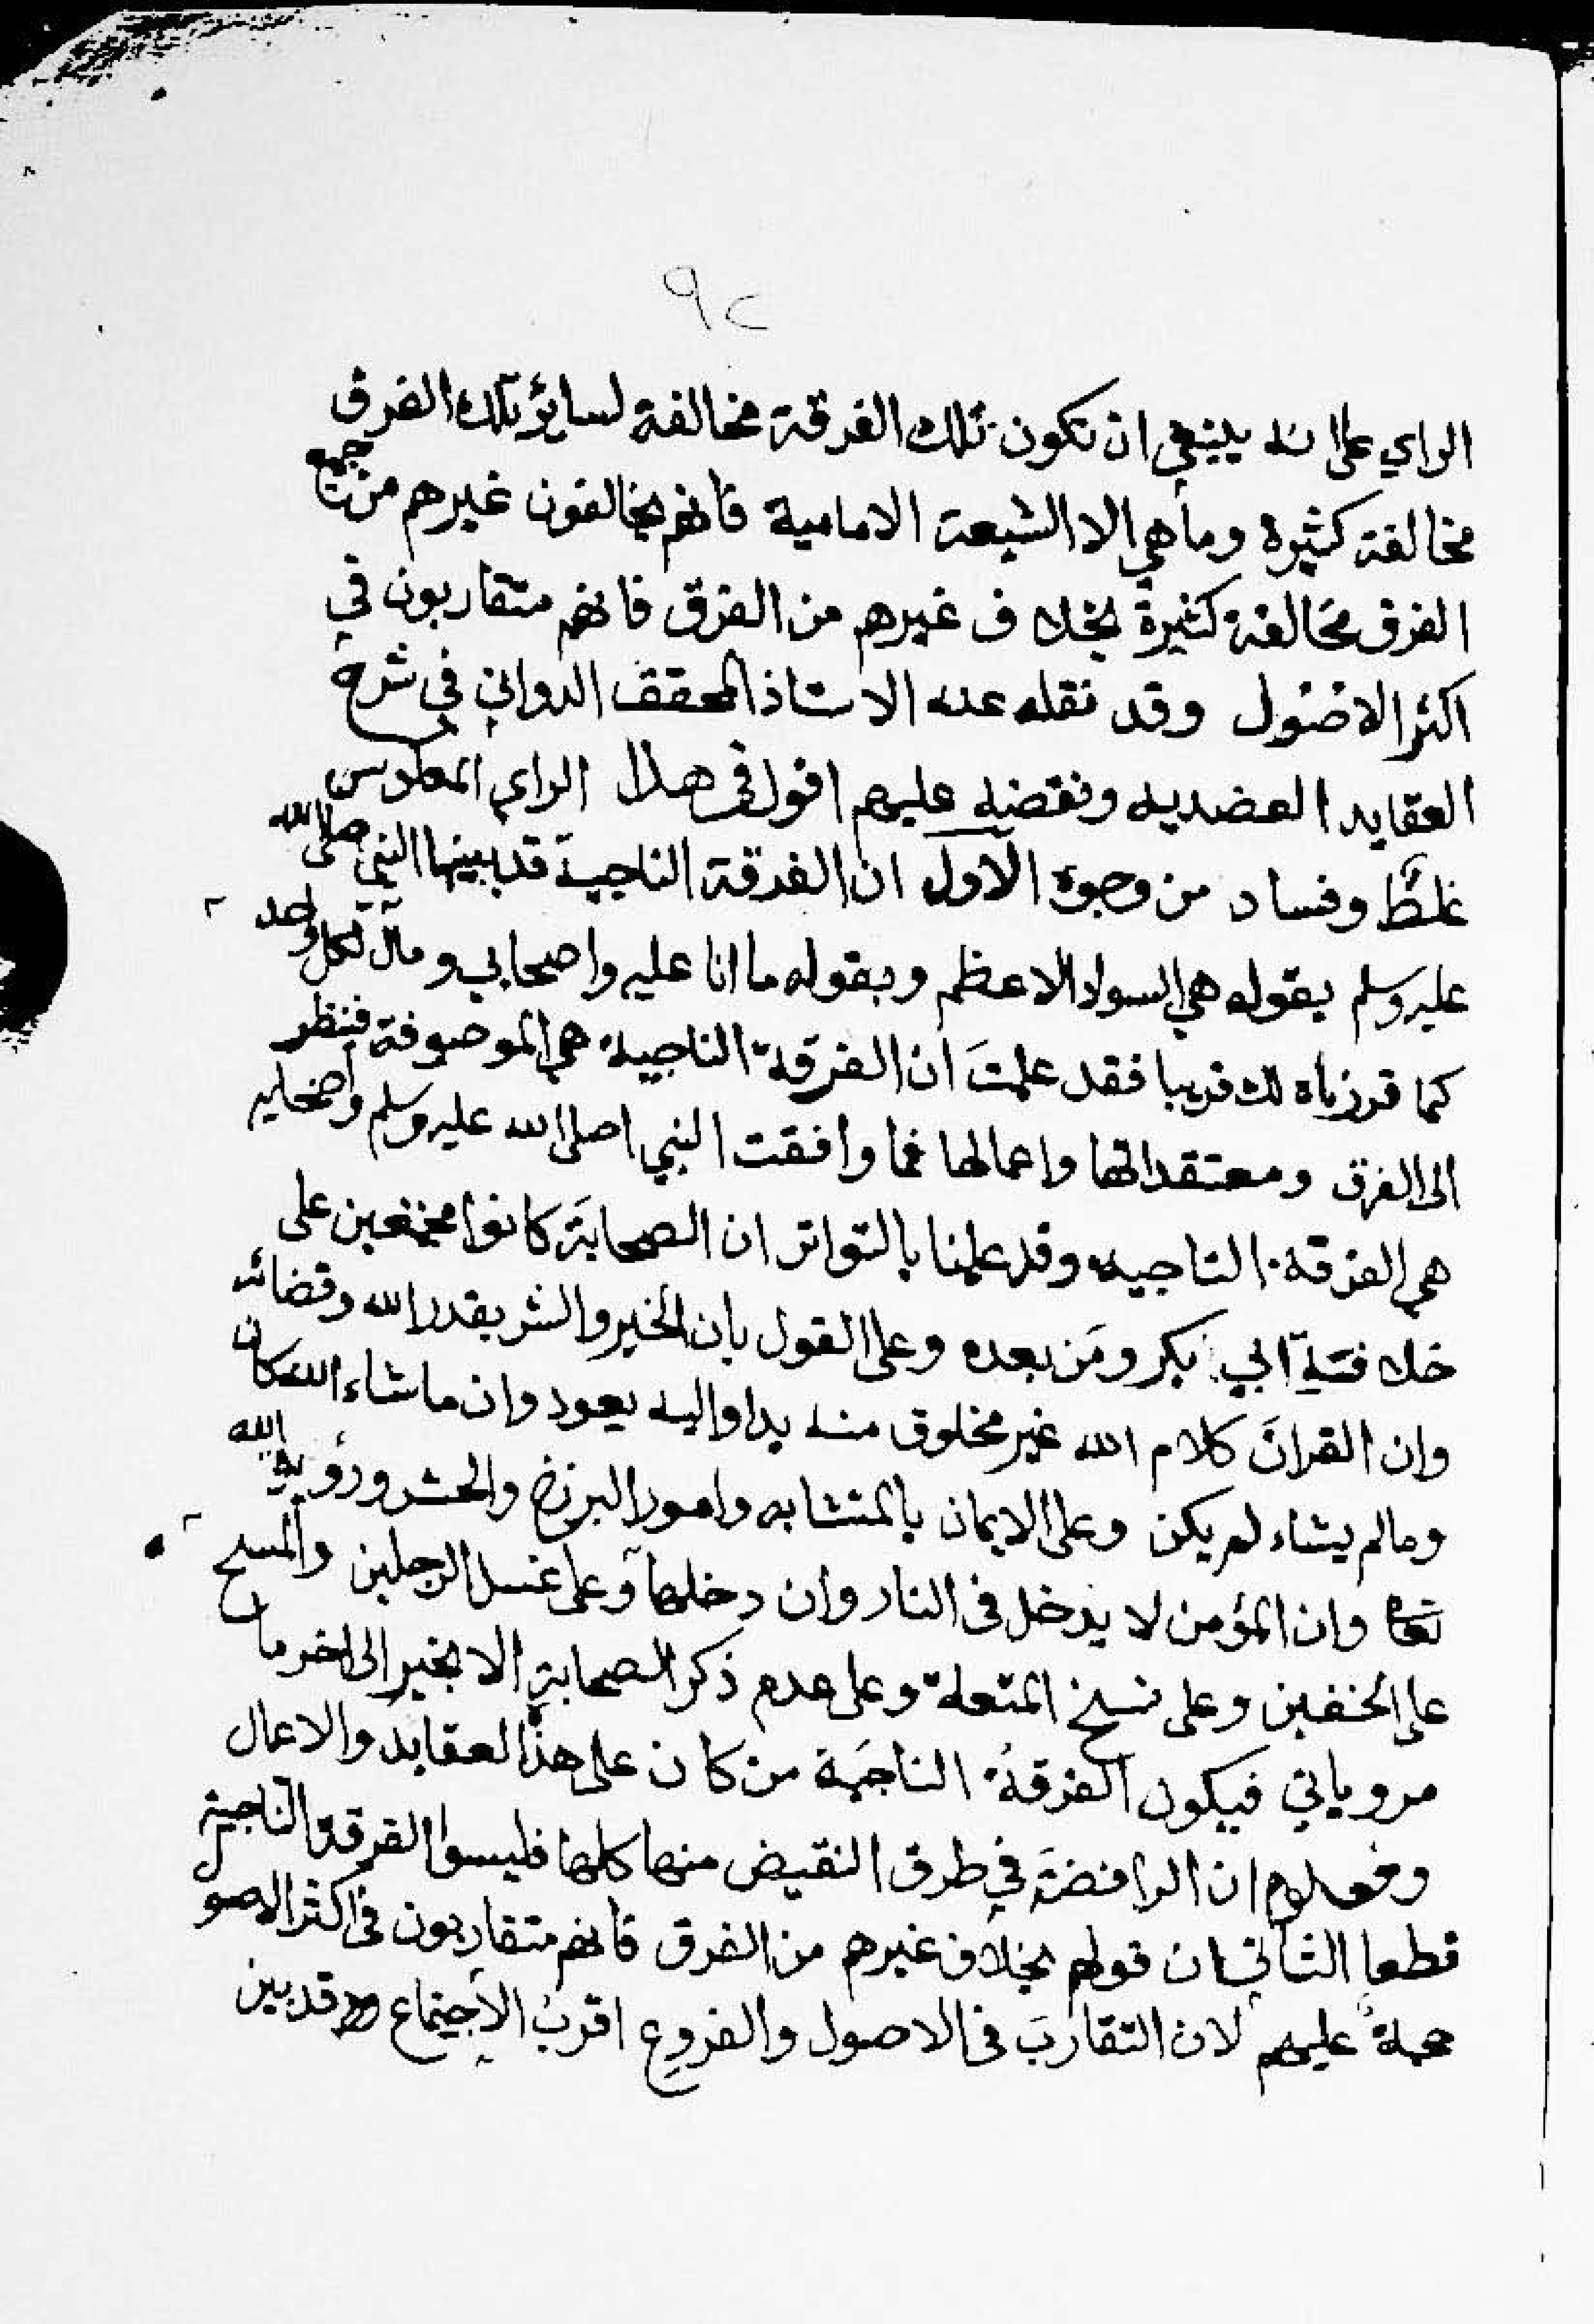 ٩٢
الراي على انه ينبغي ان تكون تلك الفرقة مخالفة لساير تلك الفرق
مخالفة كثيرة وما هي الا الشيعة الامامية فانهم يخالفون غيرهم من جميع
الفرق مخالفة كثيرة بخلاف غيرهم من الفرق فانهم متقاربون في
اكثر الاصول وقد نقله عنه الاستاذ المحقق الدواني في شرح
العقايد العضديه ونقضه عليهم اقول في هذا الراي المعكوس
غلط وفساد من وجوه الاول ان الفرقة الناجية قد بينها النبي صلى الله
عليه وسلم بقوله هي السواد الاعظم وبقوله ما انا عليه واصحابي ومآل الكل واحد
كما قررناه لك قريبا فقد علمتَ ان الفرقة الناجيه هي الموصوفة فننظر
الى الفرق ومعتقداتها واعمالها فما وافقت النبي صلى الله عليه وسلم واصحابه
هي الفرقة الناجيه وقد علمنا بالتواتر ان الصحابَة كانوا مجتمعين على
خلافةِ ابي بكر ومَن بعده وعلى القول بان الخير والشر بقدر الله وقضائه
وان القرانَ كلام الله غير مخلوق منه بدا واليه يعود وان ما شاء الله كان
وما لم يشاء لم يكن وعلى الايمان بالمتشابه وامور البرزخ والحشر ورؤية الله
تعالى وان المؤمن لا يخلد في النار وان دخلها وعلى غسل الرجلين والمسح
على الخفين وعلى نسخ المتعة وعلى عدم ذكر الصحابةِ الا بخير الى اخر ما
مر وياتي فيكون الفرقةُ الناجَية من كان على هذا العقايد والاعمال
ومعلوم ان الرافضَة في طرف النقيض منها كلها فليسوا الفرقة الناجية
قطعا الثاني ان قولهم بخلاف غيرهم من الفرق فانهم متقاربون في اكثر الاصول
حجةً عليهم لان التقاربَ في الاصول والفروعِ اقربُ الاجتماع وقد بين